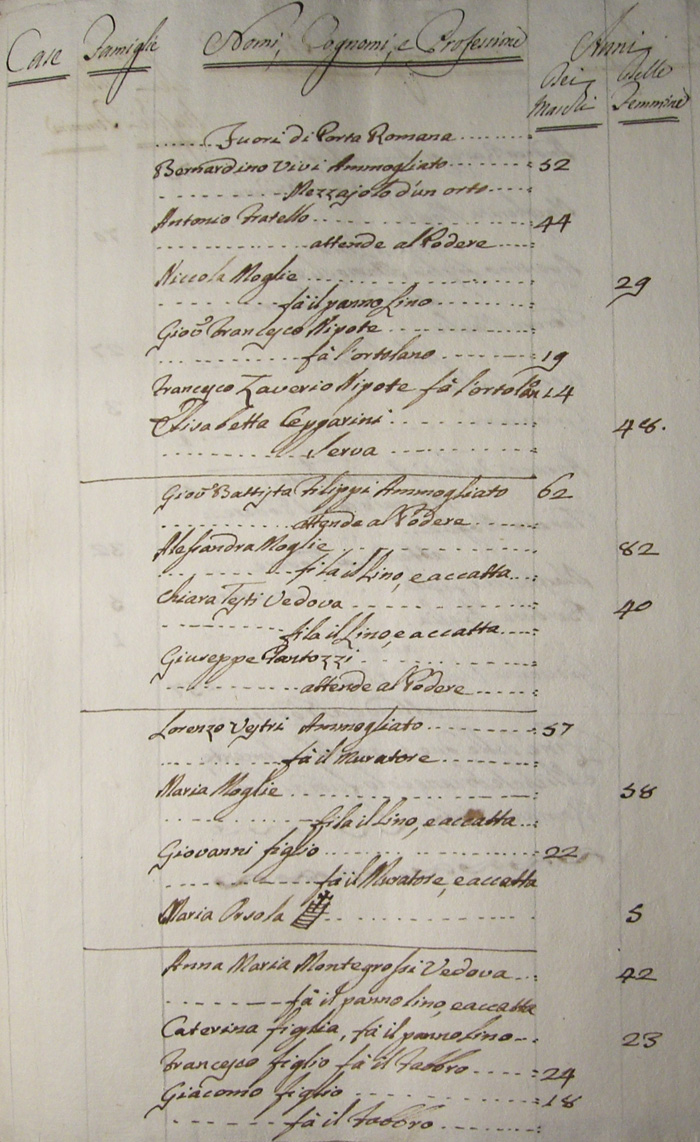 Case Famiglie Nomi, Cognomi, e Professioni Anni
Dei Maschi Delle Femmine
Fuori di Porta Romana
Bernardino Vivi Ammogliato 52
Mezzajolo d'un orto
Antonio Fratello 44
attende al Podere
Niccola Moglie 29
fà il panno Lino
Giov̄ Francesco Nipote
fà l'ortolano 19
Francesco Zaverio Nipote fà l'ortolān 14
Elisabetta Ceggarini 48.
Serva
Giov̄ Battista Filippi Ammogliato 62
attende al Podere
Alessandra Moglie 82
fila il Lino, e accatta
Chiara Testi Vedova 40
fila il Lino, e accatta
Giuseppe Pantozzi
attende al Podere
Lorenzo Vestri Ammogliato 57
fà il Muratore
Maria Moglie 58
fila il Lino, e accatta
Giovanni figlio 22
fà il Muratore, e accatta
Maria Orsola 5
Anna Maria Montegrossi Vedova 42
fà il panno lino, e accatta
Caterina figlia, fà il panno Lino 23
Francesco figlio fà il Fabbro 24
Giacomo figlio 18
fà il Fabbro